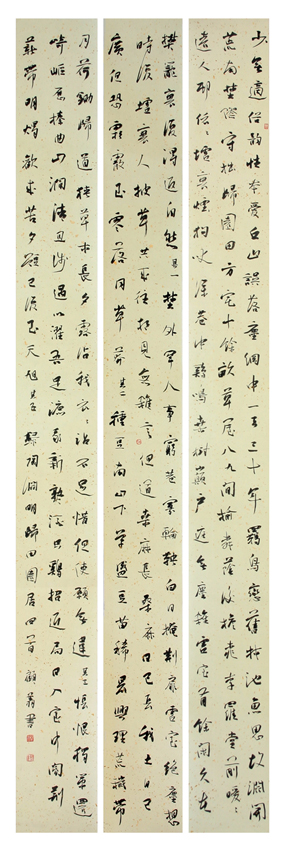 少無適俗韻性本愛丘山誤落塵網中一去三十年羈鳥戀舊林池魚思故淵開
荒南野際守拙歸園田方宅十餘畝草屋八九間榆柳蔭後檐桃李羅堂前曖曖
遠人村依依墟里煙狗吠深巷中雞鳴桑樹巔戶庭無塵雜虛室有餘閒久在
樊籠裏復得返自然其一野外罕人事窮巷寡輪鞅白日掩荊扉虛室絕塵想
時復墟里人披草共來往相見無雜言但道桑麻長桑麻日已長我土日已
廣但恐霜霰至零落同草莽其二種豆南山下草盛豆苗稀晨興理荒穢帶
月荷鋤歸道狹草木長夕露沾我衣衣沾不足惜但使願無違其三悵恨獨策還
崎嶇歷榛曲山澗清且淺遇以濯吾足漉我新熟酒隻雞招近局日入室中闇荊
薪帶明燭歡來苦夕短已復至天旭其五錄陶淵明歸田園居四首書